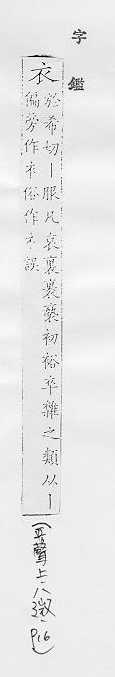 字鑑
衣
於希切丨服凡哀裏裹褻初裕卒雜之類从丨
偏旁作衤俗作ネ誤
(平聲上·八微·P16)